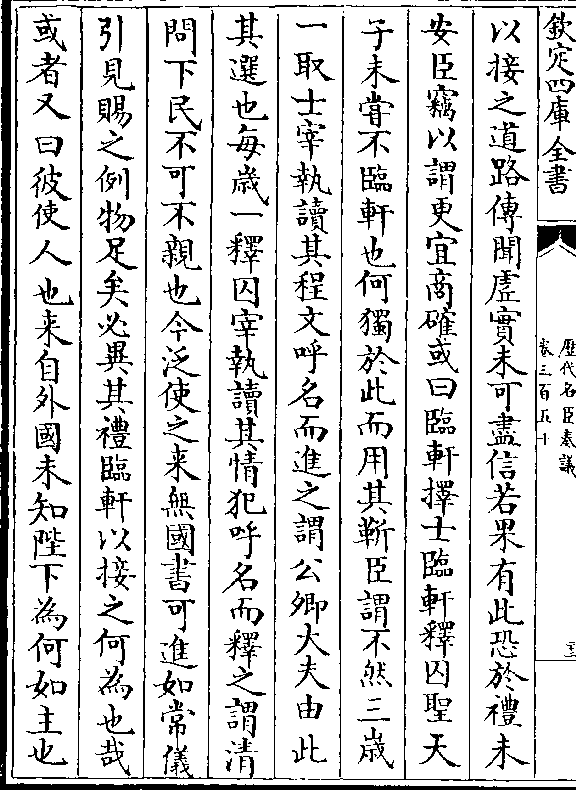 欽定四庫全書
歷代名臣奏議
卷三百五十
以接之道路傳聞虛實未可盡信若果有此恐於禮未
安臣竊以謂更宜商確或曰臨軒擇士臨軒釋囚聖天
子未嘗不臨軒也何獨於此而用其靳臣謂不然三歲
一取士宰執讀其程文呼名而進之謂公卿大夫由此
其選也每歲一釋囚宰執讀其情犯呼名而釋之謂清
問下民不可不親也今泛使之来無國書可進如常儀
引見賜之例物足矣必異其禮臨軒以接之何為也哉
或者又曰彼使人也来自外國未知陛下為何如主也